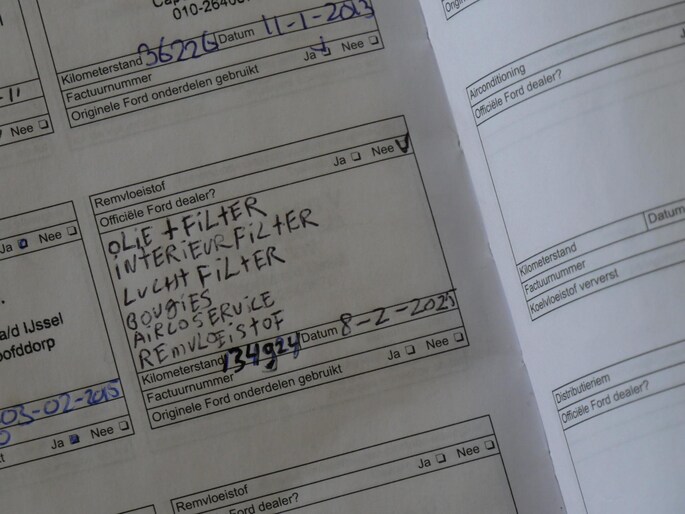 010-2640
Kilometerstand 36226 Datum 11-1-2013
Factuurnummer
Originele Ford onderdelen gebruikt Ja Nee
Nee
Remvloeistof
Officiële Ford dealer? Ja Nee V
OLIE + FiLtER
iNTERiEURFiLtER
LUCHt FiLTER
BOUGiES
AiRCOSERViCE
REMVLOEiStOF
Kilometerstand 134924 Datum 8-2-2025
Factuurnummer
Originele Ford onderdelen gebruikt Ja Nee
Ja Nee
a/d IJssel
oofddorp
03-02-2015
Ja Nee
Remvloeistof
Officiële Ford dealer? Ja Nee
Airconditioning
Officiële Ford dealer?
Kilometerstand Datum
Factuurnummer
Koelvloeistof ververst
Distributieriem
Officiële Ford dealer?